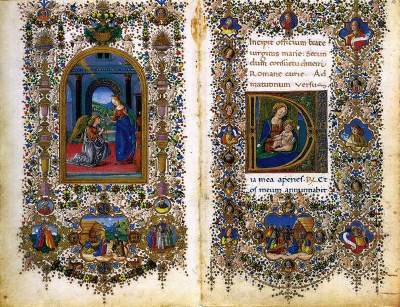 Incipit officium beate
virginis marie. Secun
dum consuetudinem
Romane curie. Ad
matutinum versus.
D
ñ mea aperies. R. Et
os meum annuntiabit